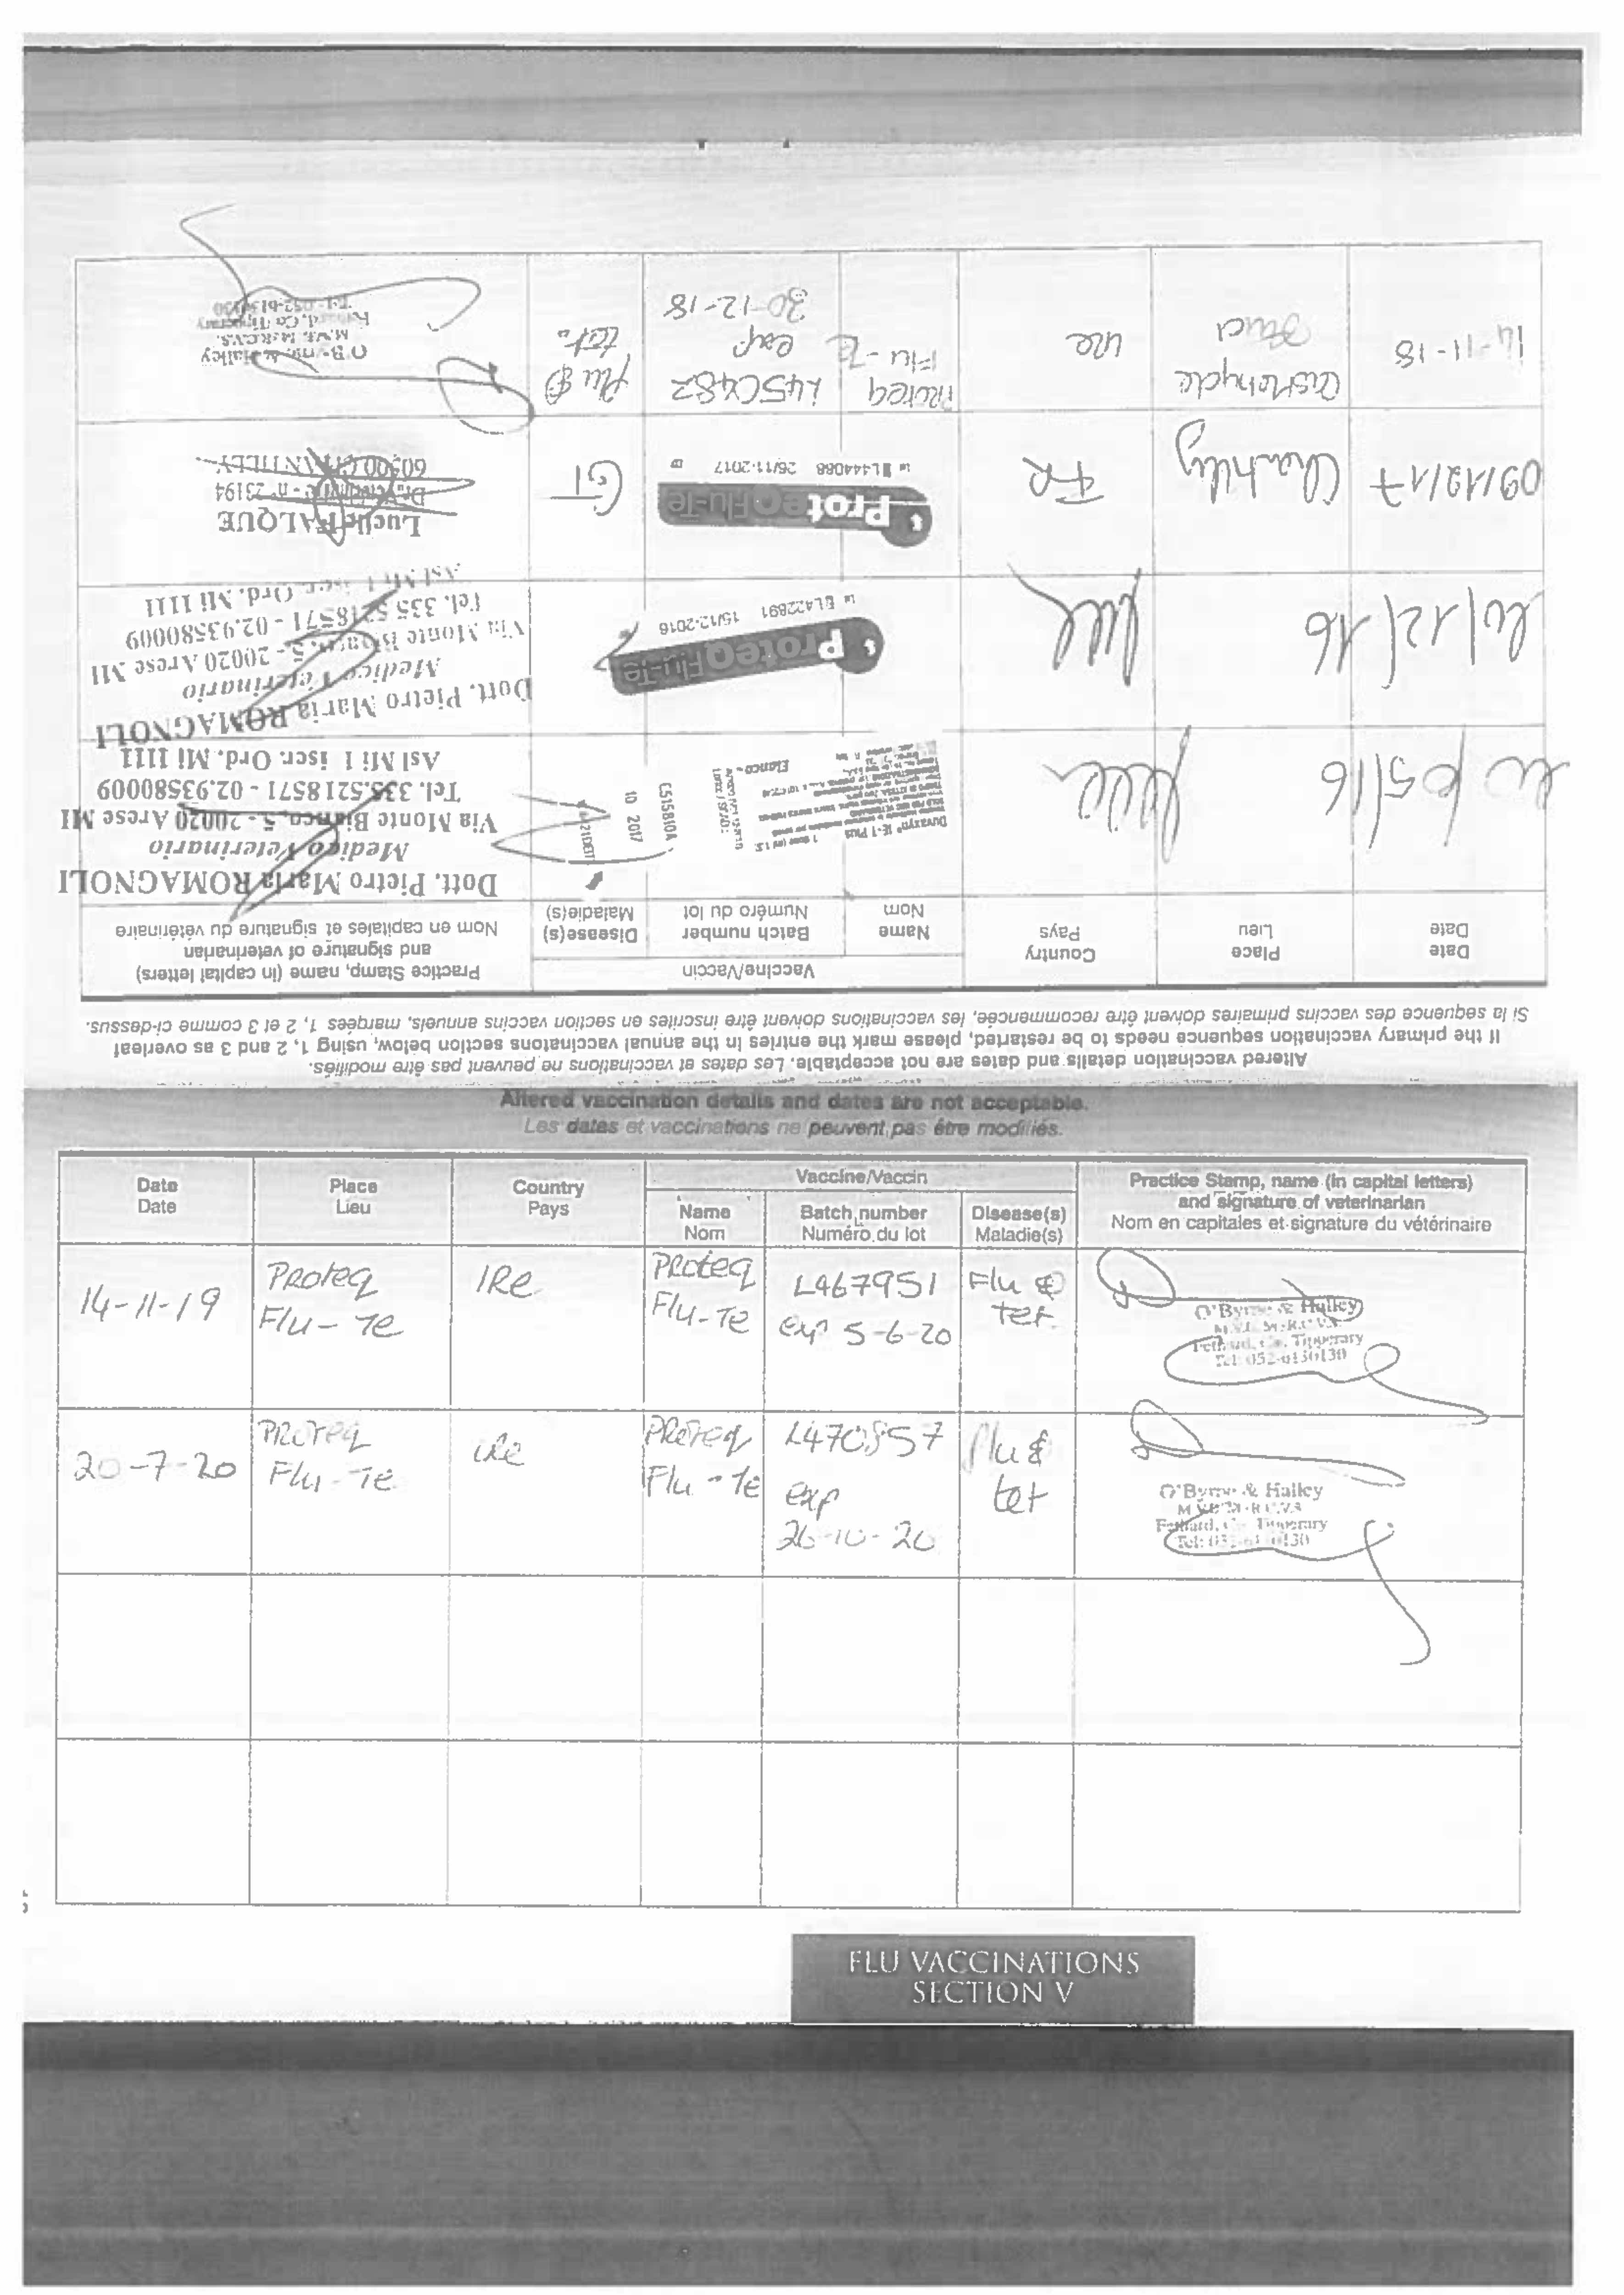 Altered vaccination details and dates are not acceptable. Les dates et vaccinations ne peuvent pas être modifiés.
If the primary vaccination sequence needs to be restarted, please mark the entries in the annual vaccinatons section below, using 1, 2 and 3 as overleaf
Si la sequence des vaccins primaires doivent être recommencée, les vaccinations doivent être inscrites en section vaccins annuels, marqées 1, 2 et 3 comme ci-dessus.
Date
Date
Place
Lieu
Country
Pays
Vaccine/Vaccin
Name
Nom
Batch number
Numéro du lot
Disease(s)
Maladie(s)
Practice Stamp, name (in capital letters)
and signature of veterinarian
Nom en capitales et signature du vétérinaire
5/16
Duvaxyn® IE-T Plus
1 dose
Elanco
C515810A
10 2017
Dott. Pietro Maria ROMAGNOLI
Medico Veterinario
Via Monte Bianco, 5 - 20020 Arese MI
Tel. 335.5218571 - 02.93580009
Asl Mi 1 iscr. Ord. Mi 1111
/12/16
Proteq Flu-Te
L422891 15/12/2016
Dott. Pietro Maria ROMAGNOLI
Medico Veterinario
Via Monte Bianco, 5 - 20020 Arese MI
Tel. 335.5218571 - 02.93580009
Asl Mi 1 iscr. Ord. Mi 1111
09/12/17
Chantilly
FR
Proteq Flu-Te
L444088 26/11/2017
GT
Lucile FALQUE
Dr Vétérinaire - n° 23194
60500 CHANTILLY
14-11-18
Castlehyde
Stud
IRe
Proteq
Flu-Te
L45C482
exp
30-12-18
Flu &
tet.
O'Byrne & Halley
M.V.B. M.R.C.V.S.
Fethard, Co. Tipperary
Tel: 052-6130130
Altered vaccination details and dates are not acceptable.
Les dates et vaccinations ne peuvent pas être modifiés.
Date
Date
Place
Lieu
Country
Pays
Vaccine/Vaccin
Name
Nom
Batch number
Numéro du lot
Disease(s)
Maladie(s)
Practice Stamp, name (in capital letters)
and signature of veterinarian
Nom en capitales et signature du vétérinaire
14-11-19
Proteq
Flu-Te
IRe
Proteq
Flu-Te
L467951
exp 5-6-20
Flu &
tet.
O'Byrne & Halley
M.V.B. M.R.C.V.S.
Fethard, Co. Tipperary
Tel: 052-6130130
20-7-20
Proteq
Flu-Te
IRe
Proteq
Flu-Te
L470857
exp
26-10-20
Flu &
tet
O'Byrne & Halley
M.V.B. M.R.C.V.S
Fethard, Co. Tipperary
Tel: 052-6130130
FLU VACCINATIONS
SECTION V